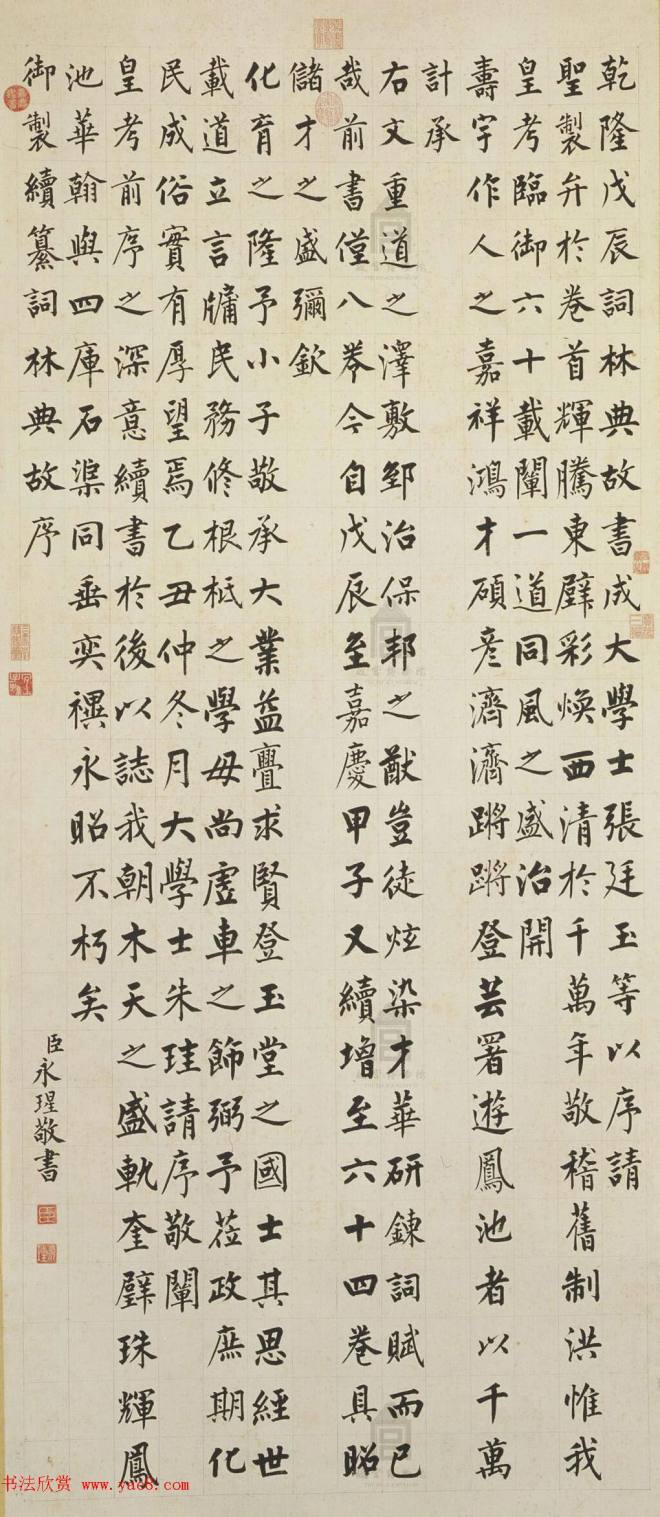 乾隆戊辰詞林典故書成大學士張廷玉等以序請
聖製弁於卷首輝騰東璧彩煥西清於千萬年敬稽舊制洪惟我
皇考臨御六十載闡一道同風之盛治開
壽宇作人之嘉祥鴻才碩彥濟濟蹌蹌登芸署遊鳳池者以千萬
計承
右文重道之澤敷郅治保邦之猷豈徒炫染才華研鍊詞賦而已
哉前書僅八卷今自戊辰至嘉慶甲子又續增至六十四卷具昭
儲才之盛彌欽
化育之隆予小子敬承大業益亹求賢登玉堂之國士其思經世
載道立言牖民務修根柢之學毋尚虛車之飾弼予蒞政庶期化
民成俗實有厚望焉乙丑仲冬月大學士朱珪請序敬闡
皇考前序之深意續書於後以誌我朝木天之盛軌奎璧珠輝鳳
池華翰與四庫石渠同垂奕禩永昭不朽矣
御製續纂詞林典故序
臣永瑆敬書
书法欣赏 www.yac8.com